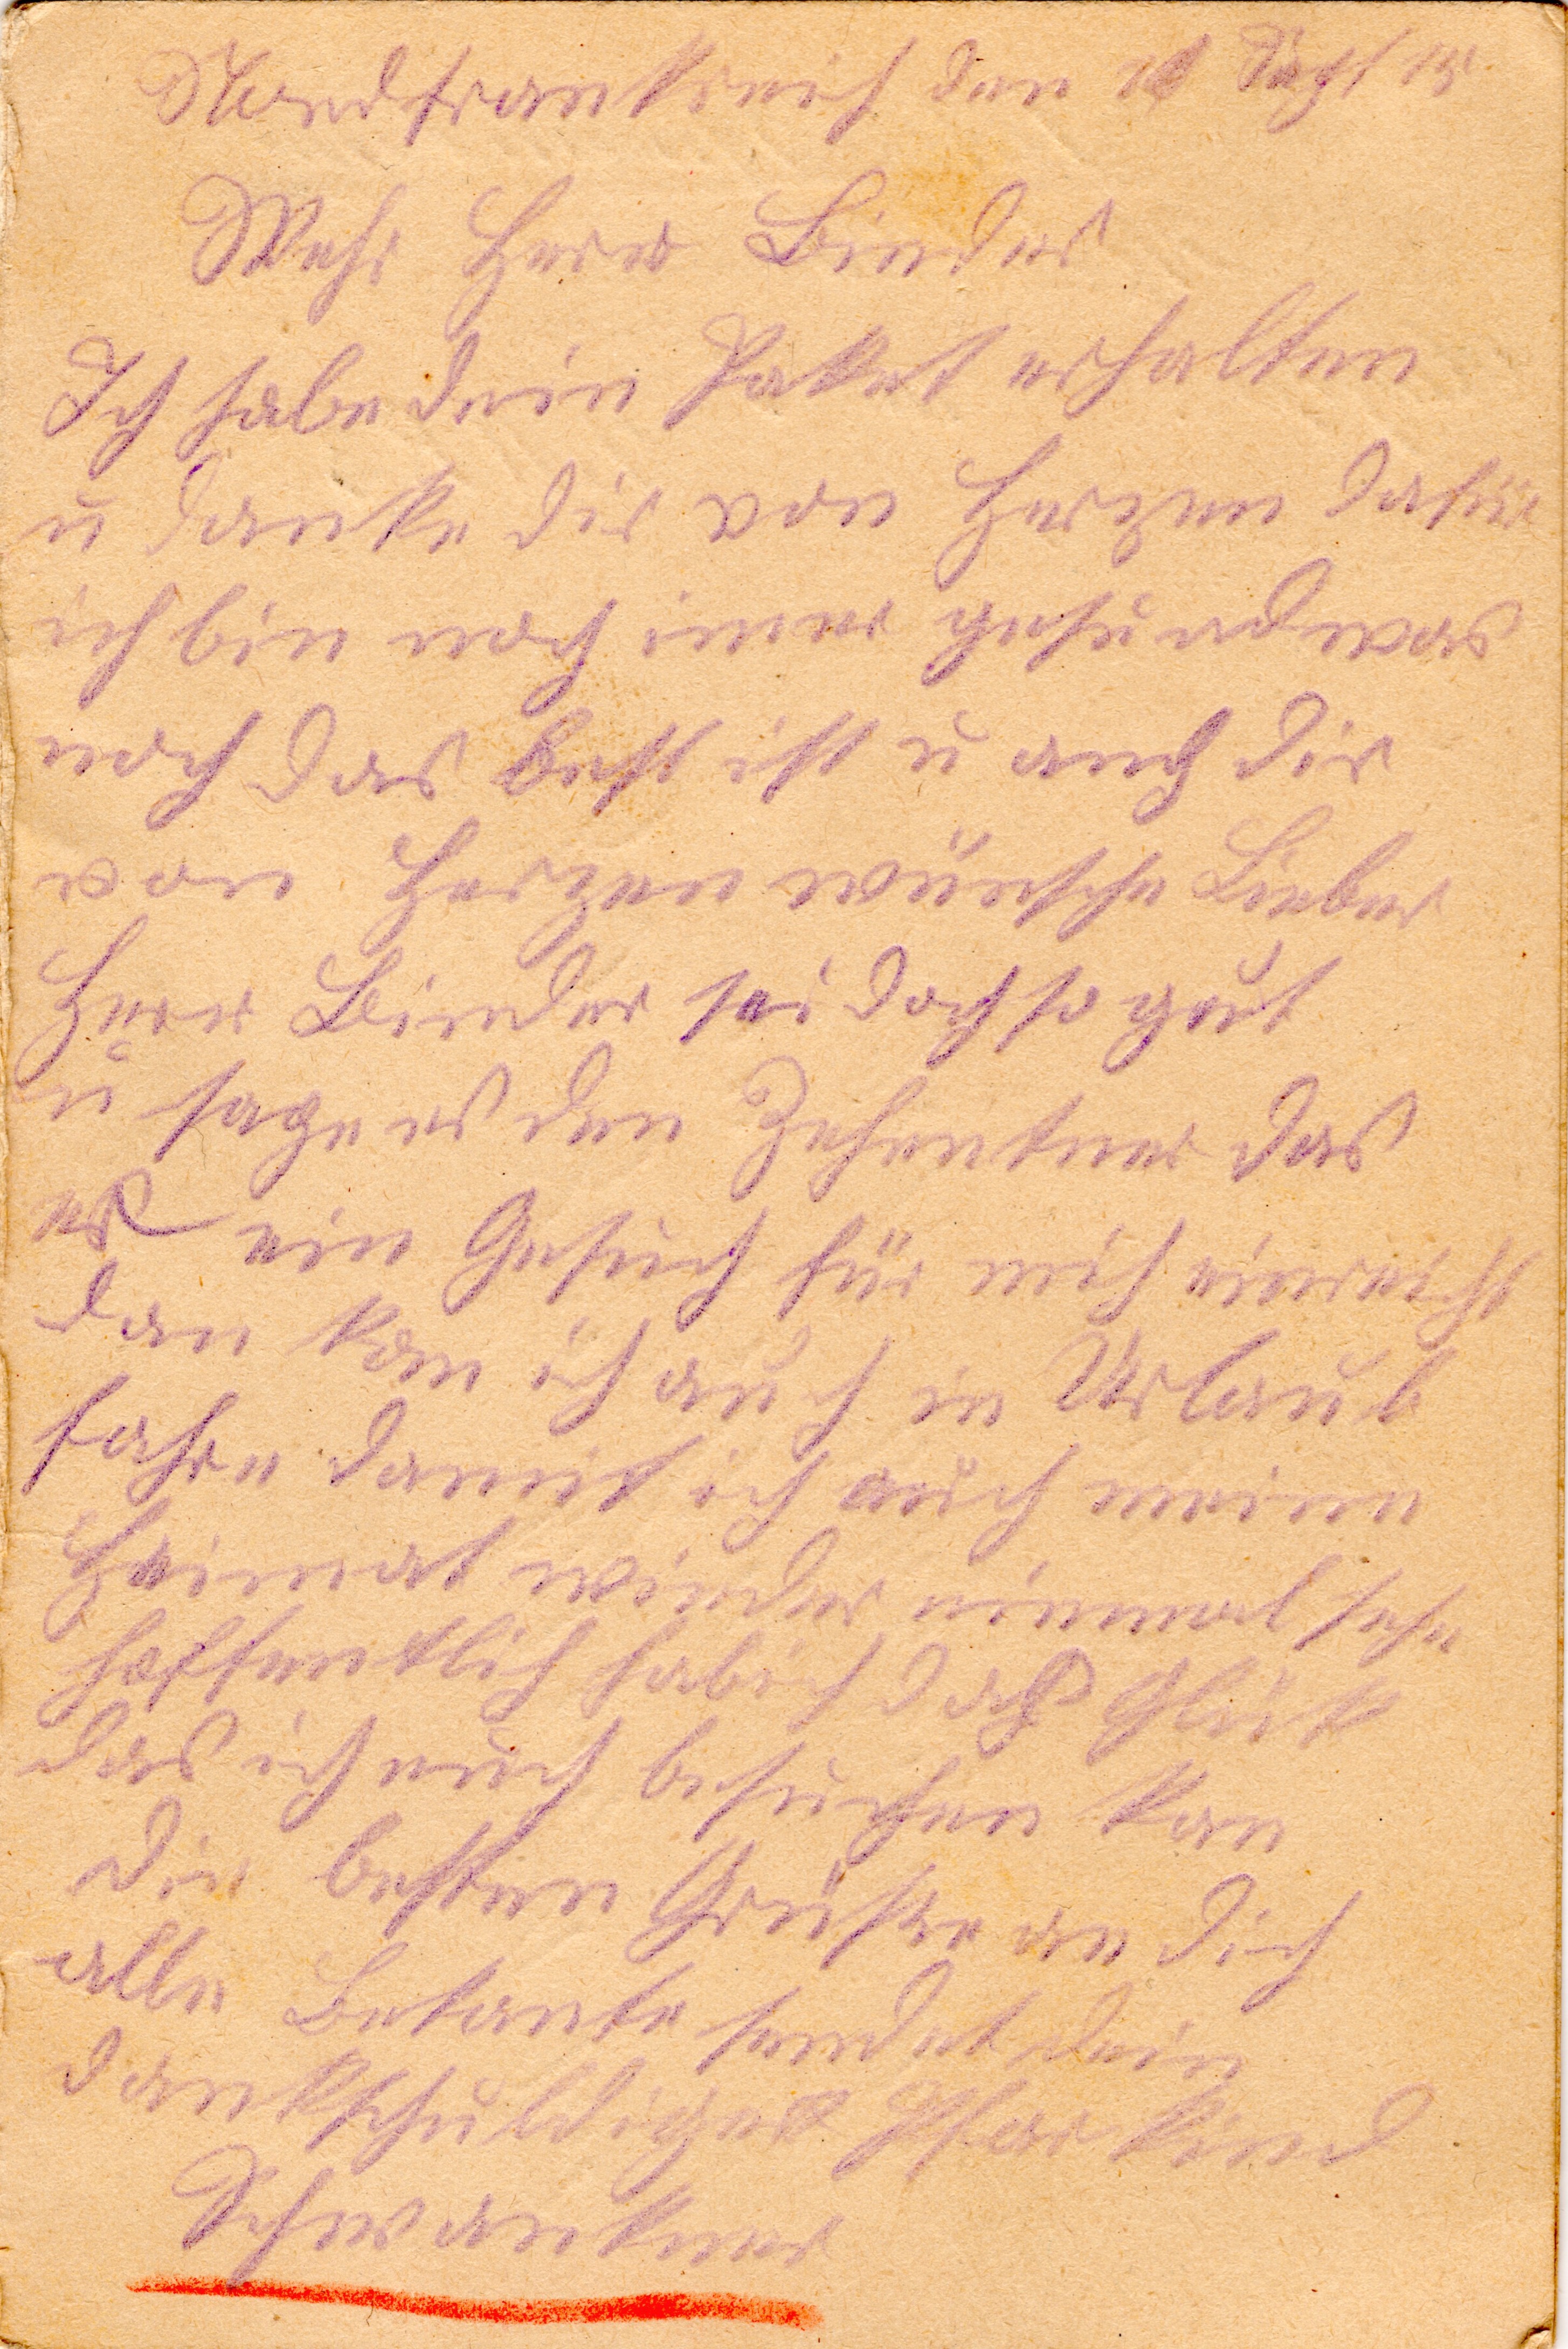 Nordfrankreich den 10 Sept 15
Mehr Herr Binder
Ich habe dein Paket erhalten
u danke dir von Herzen dafür
ich bin noch imer gesund was
noch das best ist u auch dir
von Herzen wünsche Lieber
Herr Binder sei doch so gut
u sage es den Zehentner das
er ein Gesuch für mich einreicht
dan kan ich auch in Urlaub
fahre damit ich auch meine
Heimat wieder einmal sehe
hoffentlich hab ich das Glük
das ich euch besuchen kan
Die besten Grüße an dich
alle Bekante sendet dein
dankschuldiges Pfarkind
Schwankner